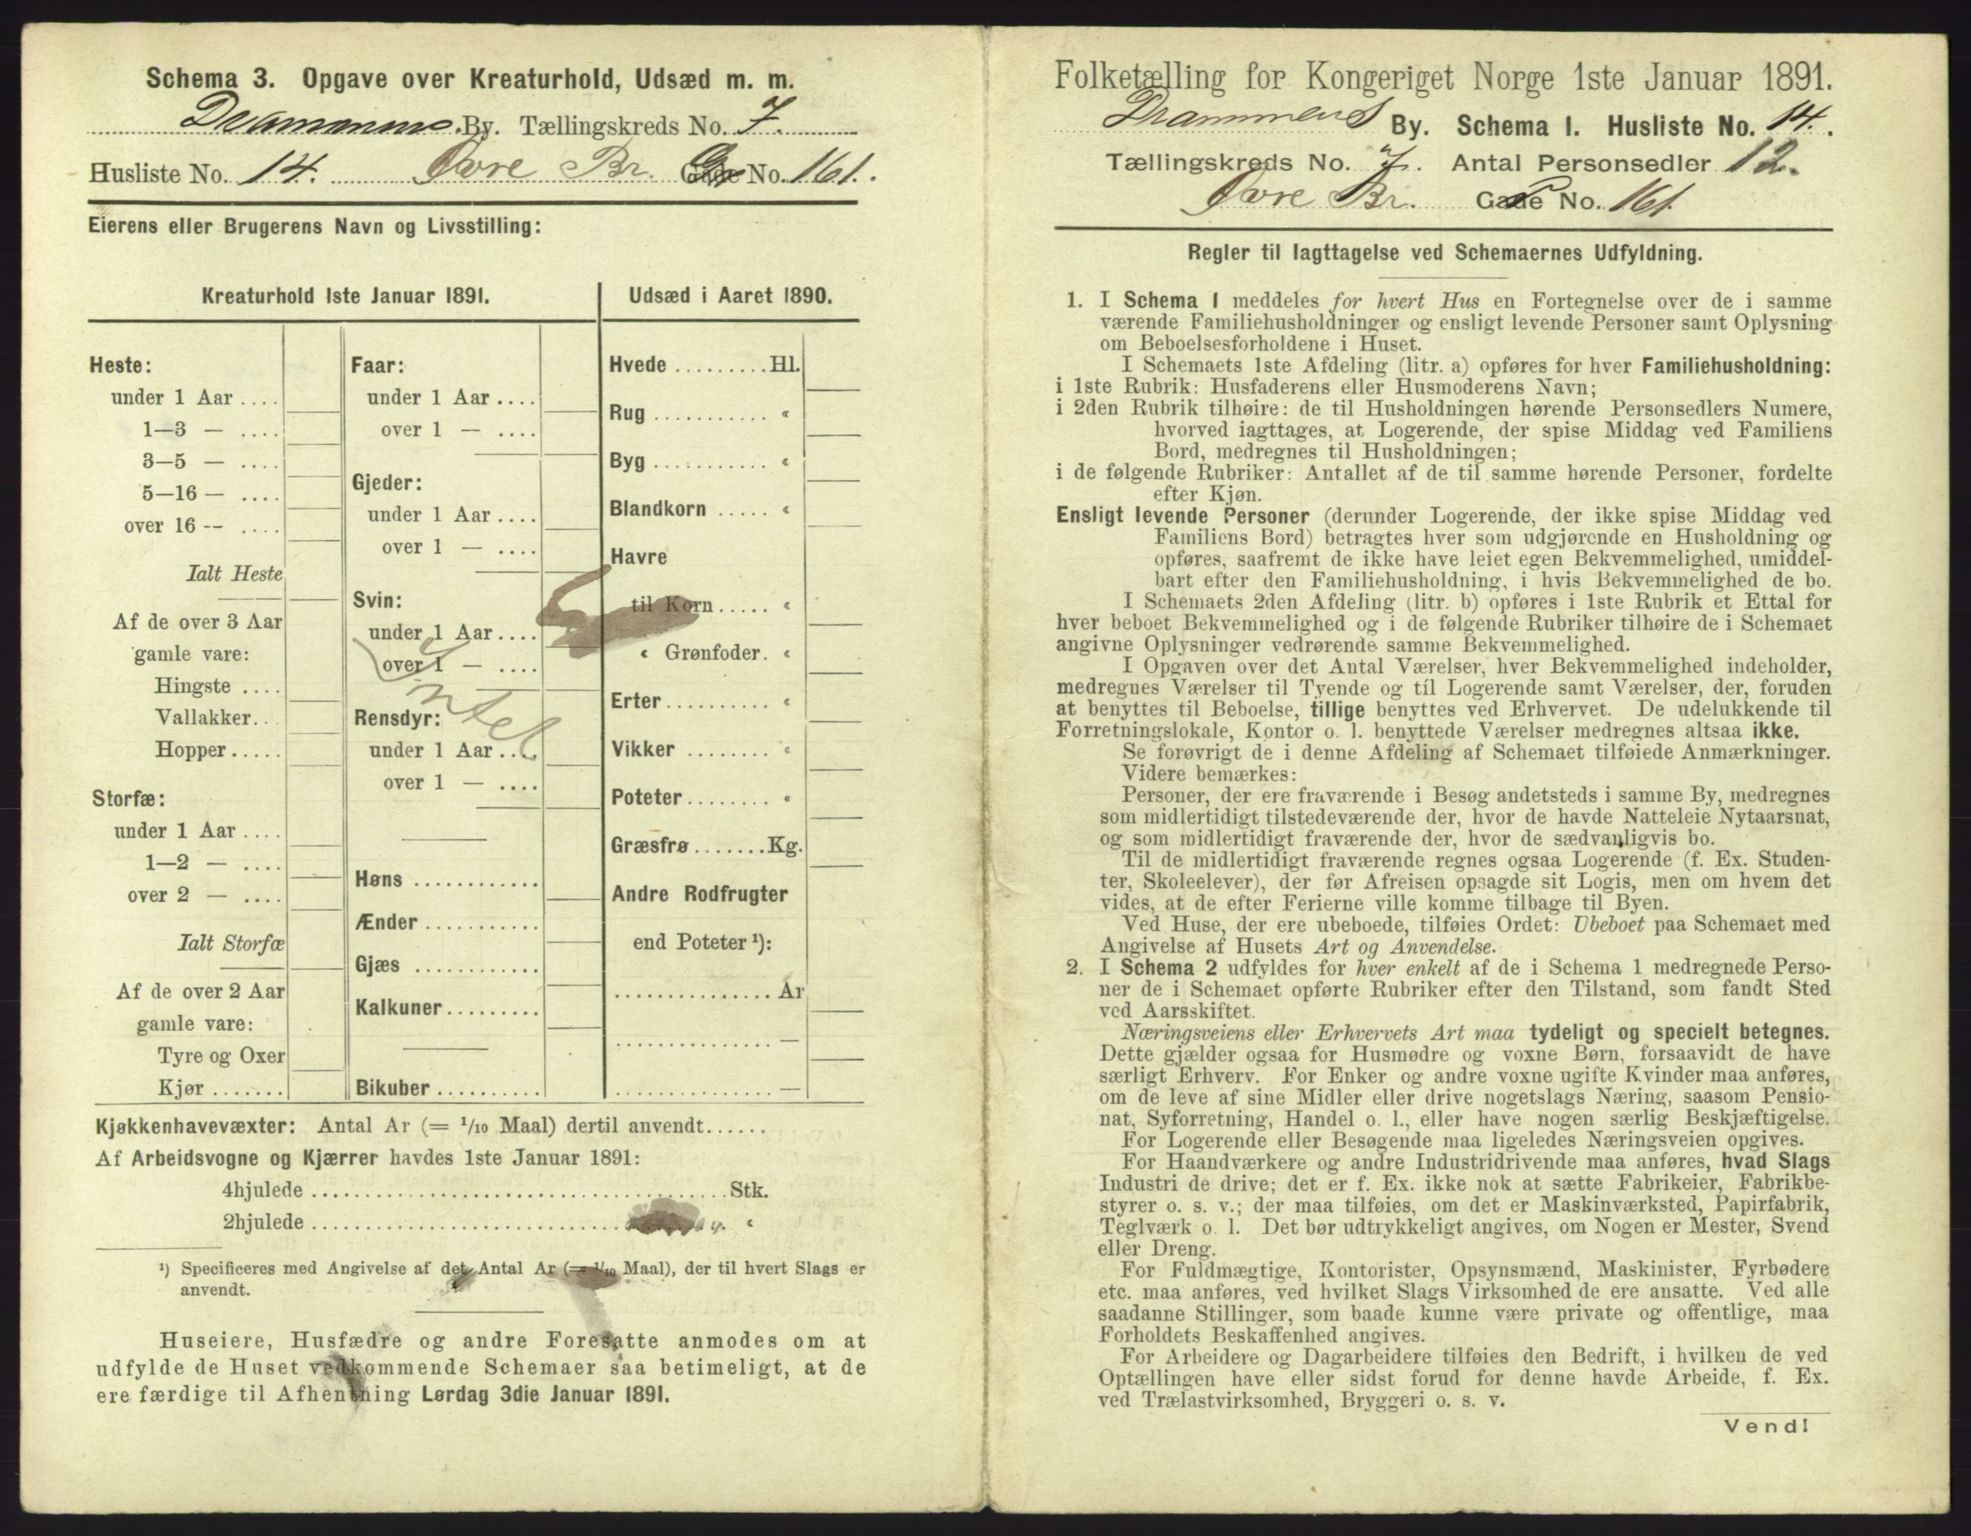 Schema 3. Opgave over Kreaturhold, Udsæd m. m.
Drammens By. Tællingskreds No. 7.
Husliste No. 14. Øvre Br. Gade No. 161.
Eierens eller Brugerens Navn og Livsstilling:
Kreaturhold 1ste Januar 1891.
Heste:
under 1 Aar ....
1—3 — ....
3—5 — ....
5—16 — ....
over 16 -- ....
Ialt Heste
Af de over 3 Aar
gamle vare:
Hingste ....
Vallakker...
Hopper .....
Storfæ:
under 1 Aar ....
1—2 — ....
over 2 — ....
Ialt Storfæ
Af de over 2 Aar
gamle vare:
Tyre og Oxer
Kjør .......
Faar:
under 1 Aar ....
over 1 — ....
Gjeder:
under 1 Aar ....
over 1 — ....
Svin:
under 1 Aar ....
over 1 — ....
Intet
Rensdyr:
under 1 Aar ...
over 1 — ....
Høns ............
Ænder ...........
Gjæs ............
Kalkuner.........
Bikuber ..........
Udsæd i Aaret 1890.
Hvede .........Hl.
Rug ........... “
Byg ........... “
Blandkorn ..... “
Havre
til Korn ..... “
“ Grønfoder. “
Erter.......... “
Vikker ........ “
Poteter........ “
Græsfrø .......Kg.
Andre Rodfrugter
end Poteter ¹):
............... Ar
............... —
............... —
Kjøkkenhavevæxter: Antal Ar (= 1/10 Maal) dertil anvendt......
Af Arbeidsvogne og Kjærrer havdes 1ste Januar 1891:
4hjulede ........................................ Stk.
2hjulede ........................................ “
¹) Specificeres med Angivelse af det Antal Ar (= 1/10 Maal), der til hvert Slags er
anvendt.
Huseiere, Husfædre og andre Foresatte anmodes om at
udfylde de Huset vedkommende Schemaer saa betimeligt, at de
ere færdige til Afhentning Lørdag 3die Januar 1891.
Folketælling for Kongeriget Norge 1ste Januar 1891.
Drammens By. Schema 1. Husliste No. 14.
Tællingskreds No. 7. Antal Personsedler 12.
Øvre Br. Gade No. 161
Regler til Iagttagelse ved Schemaernes Udfyldning.
1. I Schema 1 meddeles for hvert Hus en Fortegnelse over de i samme
værende Familiehusholdninger og ensligt levende Personer samt Oplysning
om Beboelsesforholdene i Huset.
I Schemaets 1ste Afdeling (litr. a) opføres for hver Familiehusholdning:
i 1ste Rubrik: Husfaderens eller Husmoderens Navn;
i 2den Rubrik tilhøire: de til Husholdningen hørende Personsedlers Numere,
hvorved iagttages, at Logerende, der spise Middag ved Familiens
Bord, medregnes til Husholdningen;
i de følgende Rubriker: Antallet af de til samme hørende Personer, fordelte
efter Kjøn.
Ensligt levende Personer (derunder Logerende, der ikke spise Middag ved
Familiens Bord) betragtes hver som udgjørende en Husholdning og
opføres, saafremt de ikke have leiet egen Bekvemmelighed, umiddel-
bart efter den Familiehusholdning, i hvis Bekvemmelighed de bo.
I Schemaets 2den Afdeling (litr. b) opføres i 1ste Rubrik et Ettal for
hver beboet Bekvemmelighed og i de følgende Rubriker tilhøire de i Schemaet
angivne Oplysninger vedrørende samme Bekvemmelighed.
I Opgaven over det Antal Værelser, hver Bekvemmelighed indeholder,
medregnes Værelser til Tyende og til Logerende samt Værelser, der, foruden
at benyttes til Beboelse, tillige benyttes ved Erhvervet. De udelukkende til
Forretningslokale, Kontor o. l. benyttede Værelser medregnes altsaa ikke.
Se forøvrigt de i denne Afdeling af Schemaet tilføiede Anmærkninger.
Videre bemærkes:
Personer, der ere fraværende i Besøg andetsteds i samme By, medregnes
som midlertidigt tilstedeværende der, hvor de havde Natteleie Nytaarsnat,
og som midlertidigt fraværende der, hvor de sædvanligvis bo.
Til de midlertidigt fraværende regnes ogsaa Logerende (f. Ex. Studen-
ter, Skoleelever), der før Afreisen opsagde sit Logis, men om hvem det
vides, at de efter Ferierne ville komme tilbage til Byen.
Ved Huse, der ere ubeboede, tilføies Ordet: Ubeboet paa Schemaet med
Angivelse af Husets Art og Anvendelse.
2. I Schema 2 udfyldes for hver enkelt af de i Schema 1 medregnede Perso-
ner de i Schemaet opførte Rubriker efter den Tilstand, som fandt Sted
ved Aarsskiftet.
Næringsveiens eller Erhvervets Art maa tydeligt og specielt betegnes.
Dette gjælder ogsaa for Husmødre og voxne Børn, forsaavidt de have
særligt Erhverv. For Enker og andre voxne ugifte Kvinder maa anføres,
om de leve af sine Midler eller drive nogetslags Næring, saasom Pensio-
nat, Syforretning, Handel o. l., eller have nogen særlig Beskjæftigelse.
For Logerende eller Besøgende maa ligeledes Næringsveien opgives.
For Haandværkere og andre Industridrivende maa anføres, hvad Slags
Industri de drive; det er f. Ex. ikke nok at sætte Fabrikeier, Fabrikbe-
styrer o. s. v.; der maa tilføies, om det er Maskinværksted, Papirfabrik,
Teglværk o. l. Det bør udtrykkeligt angives, om Nogen er Mester, Svend
eller Dreng.
For Fuldmægtige, Kontorister, Opsynsmænd, Maskinister, Fyrbødere
etc. maa anføres, ved hvilket Slags Virksomhed de ere ansatte. Ved alle
saadanne Stillinger, som baade kunne være private og offentlige, maa
Forholdets Beskaffenhed angives.
For Arbeidere og Dagarbeidere tilføies den Bedrift, i hvilken de ved
Optællingen have eller sidst forud for denne havde Arbeide, f. Ex.
ved Trælastvirksomhed, Bryggeri o. s. v.
Vend!